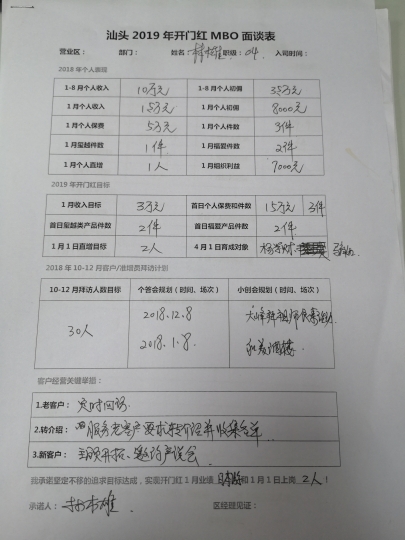 汕头 2019 年开门红 MBO 面谈表
营业区： 部门： 姓名： 职级：04 入司时间：
2018 年个人表现
1-8 月个人收入 10万元 1-8 月个人初佣 35万元
1 月个人收入 15万元 1 月个人初佣 8000元
1 月个人保费 5万元 1 月个人件数 3件
1 月玺越件数 1件 1 月福爱件数 2件
1 月个人直增 1人 1 月组织利益 7000元
2019 年开门红目标
1 月收入目标 3万元 首日个人保费和件数 15万元 3件
首日玺越类产品件数 2件 首日福爱产品件数 2件
1 月 1 日直增目标 2人 4 月 1 日育成对象
2018 年 10-12 月客户/准增员拜访计划
10-12 月拜访人数目标 个答会规划（时间、场次） 小创会规划（时间、场次）
30人 2018.12.8
2018.1.8. 酒楼
客户经营关键举措：
1.老客户： 定时回访.
2.转介绍： 服务老客户要求转介绍并收集名单
3.新客户： 开拓、邀请产说会.
我承诺坚定不移的追求目标达成，实现开门红 1 月业绩 和 1 月 1 日上岗 2 人！
承诺人： 区经理见证：